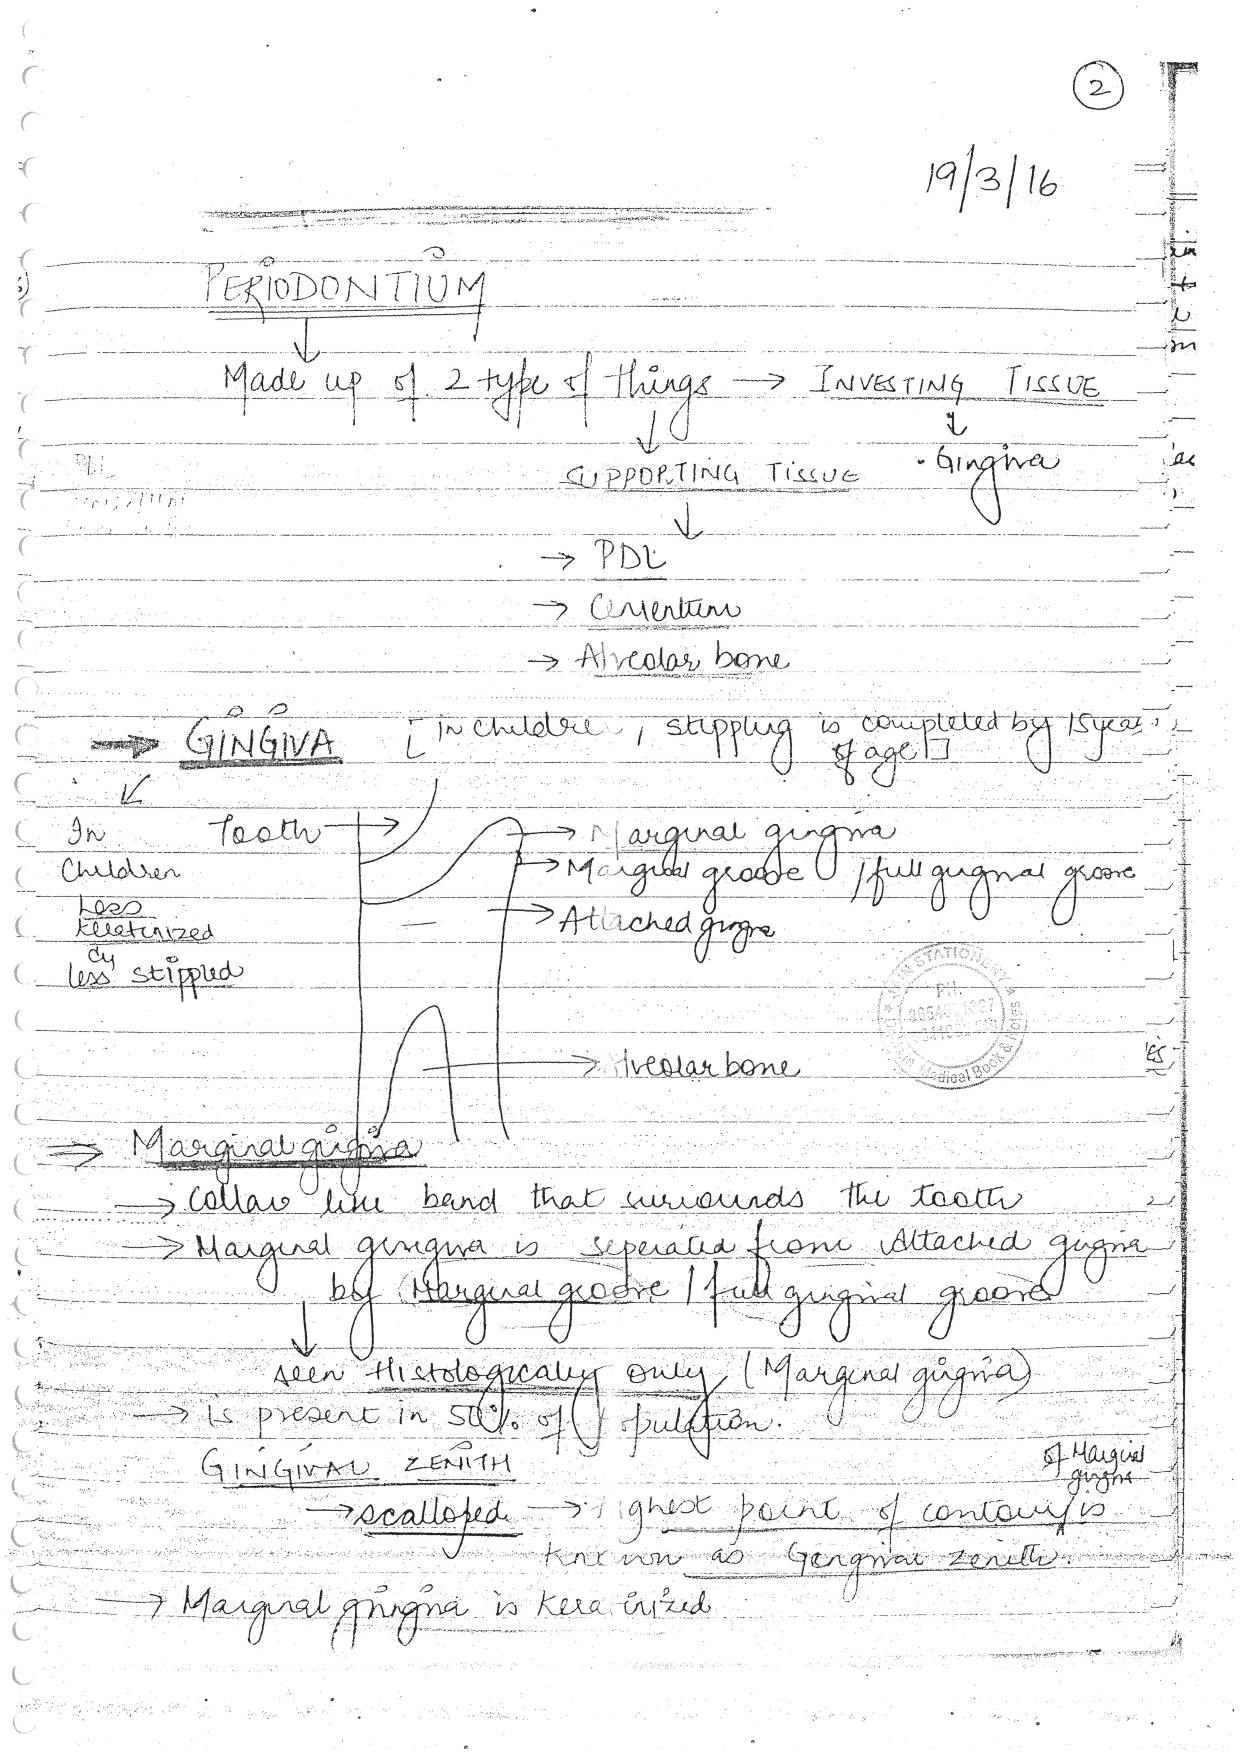 2
19/3/16
PERIODONTIUM
Made up of 2 type of things → INVESTING TISSUE
SUPPORTING TISSUE . Gingiva
→ PDL
→ Cementum
→ Alveolar bone
→ GINGIVA [in children, stippling is completed by 15 years
of age]
In Tooth → Marginal gingiva
Children → Marginal groove / full gingival groove
Less → Attached gingiva
keratinized
less stippled
STATIONERY
PH.
Medical Book & Notes
→ Alveolar bone
⇒ Marginal gingiva
→ Collar like band that surrounds the tooth
→ Marginal gingiva is seperated from Attached gingiva
by (Marginal groove / full gingival groove)
seen Histologically only (Marginal gingiva)
→ is present in 50% of population.
GINGIVAL ZENITH
of Marginal
gingiva
→ scalloped → Highest point of contour is
known as Gingival zenith.
→ Marginal gingiva is keratinized